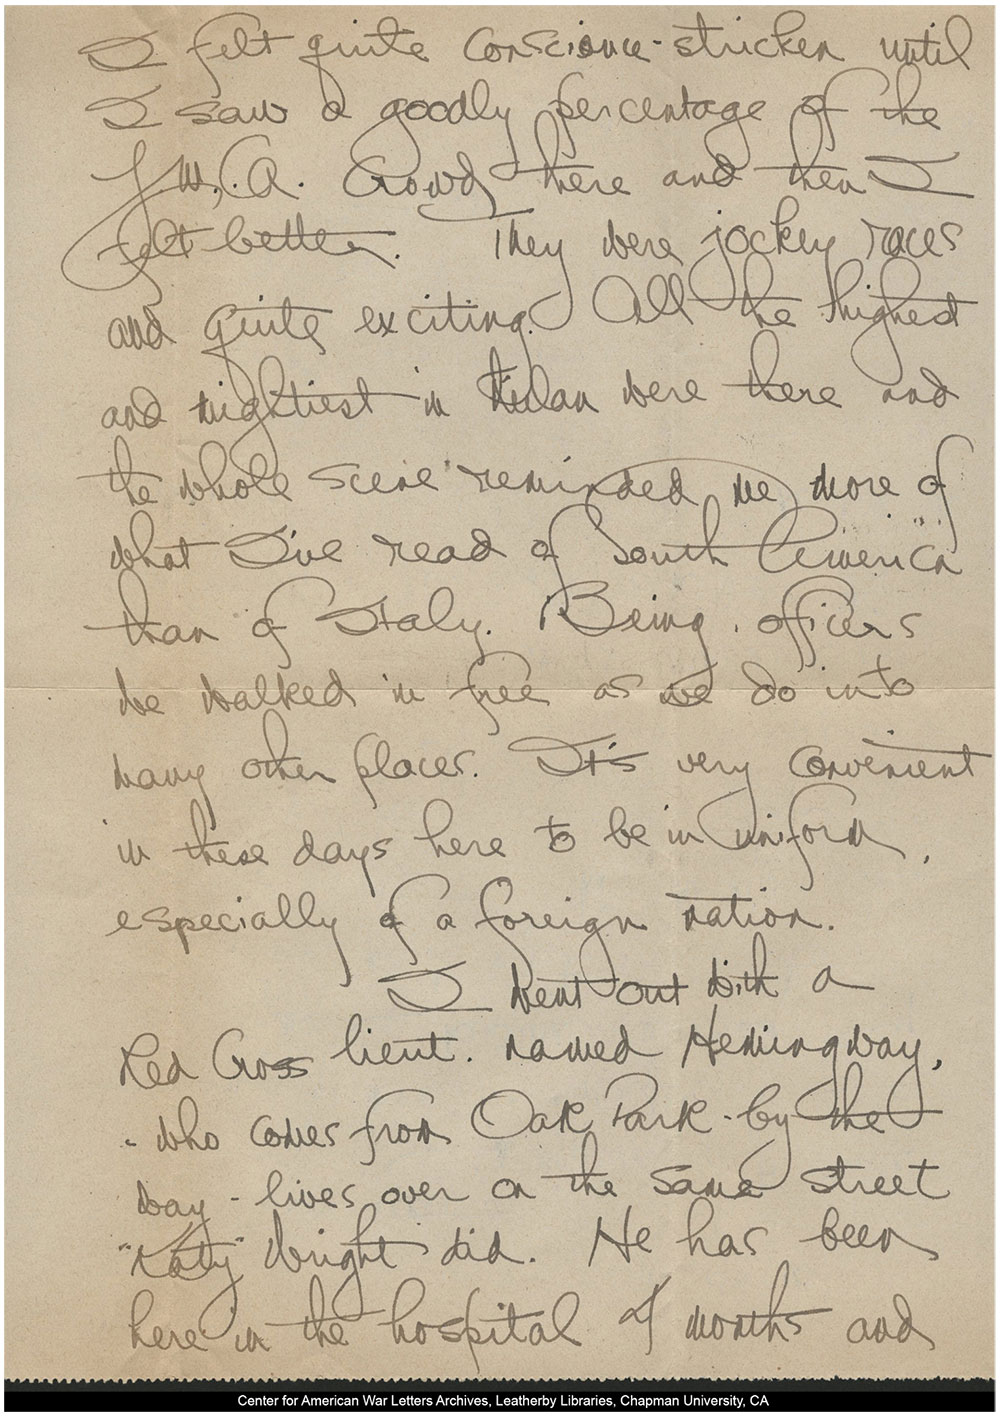 I felt quite conscience-stricken until
I saw a goodly percentage of the
Y.M.C.A. Crowd there and then I
felt better. They were jockey races
and quite exciting. All the highest
and mightiest in Milan were there and
the whole scene reminded me more of
what I've read of South America
than of Italy. Being officers
we walked in free as we do into
many other places. It's very convenient
in these days here to be in uniform,
especially of a foreign nation.
I went out with a
Red Cross lieut. named Hemingway,
- who comes from Oak Park - by the
way - lives over on the same street
"Katy" Wright did. He has been
here in the hospital 4 months and
Center for American War Letters Archives, Leatherby Libraries, Chapman University, CA